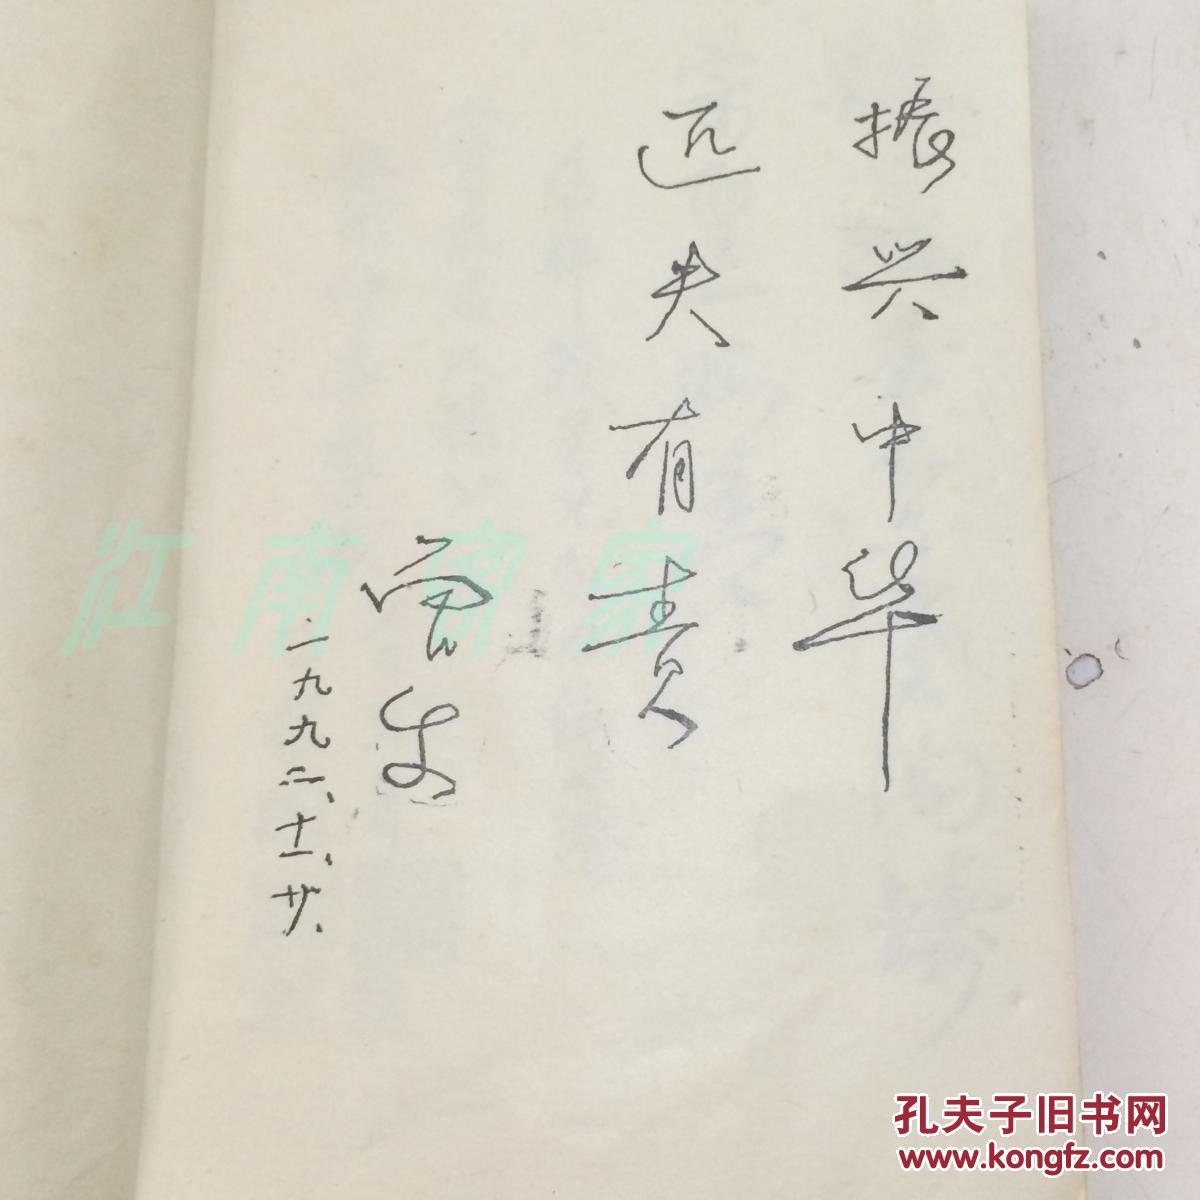 振兴中华
匹夫有责
一九九二、十一、廿、
江南客家
孔夫子旧书网
www.kongfz.com